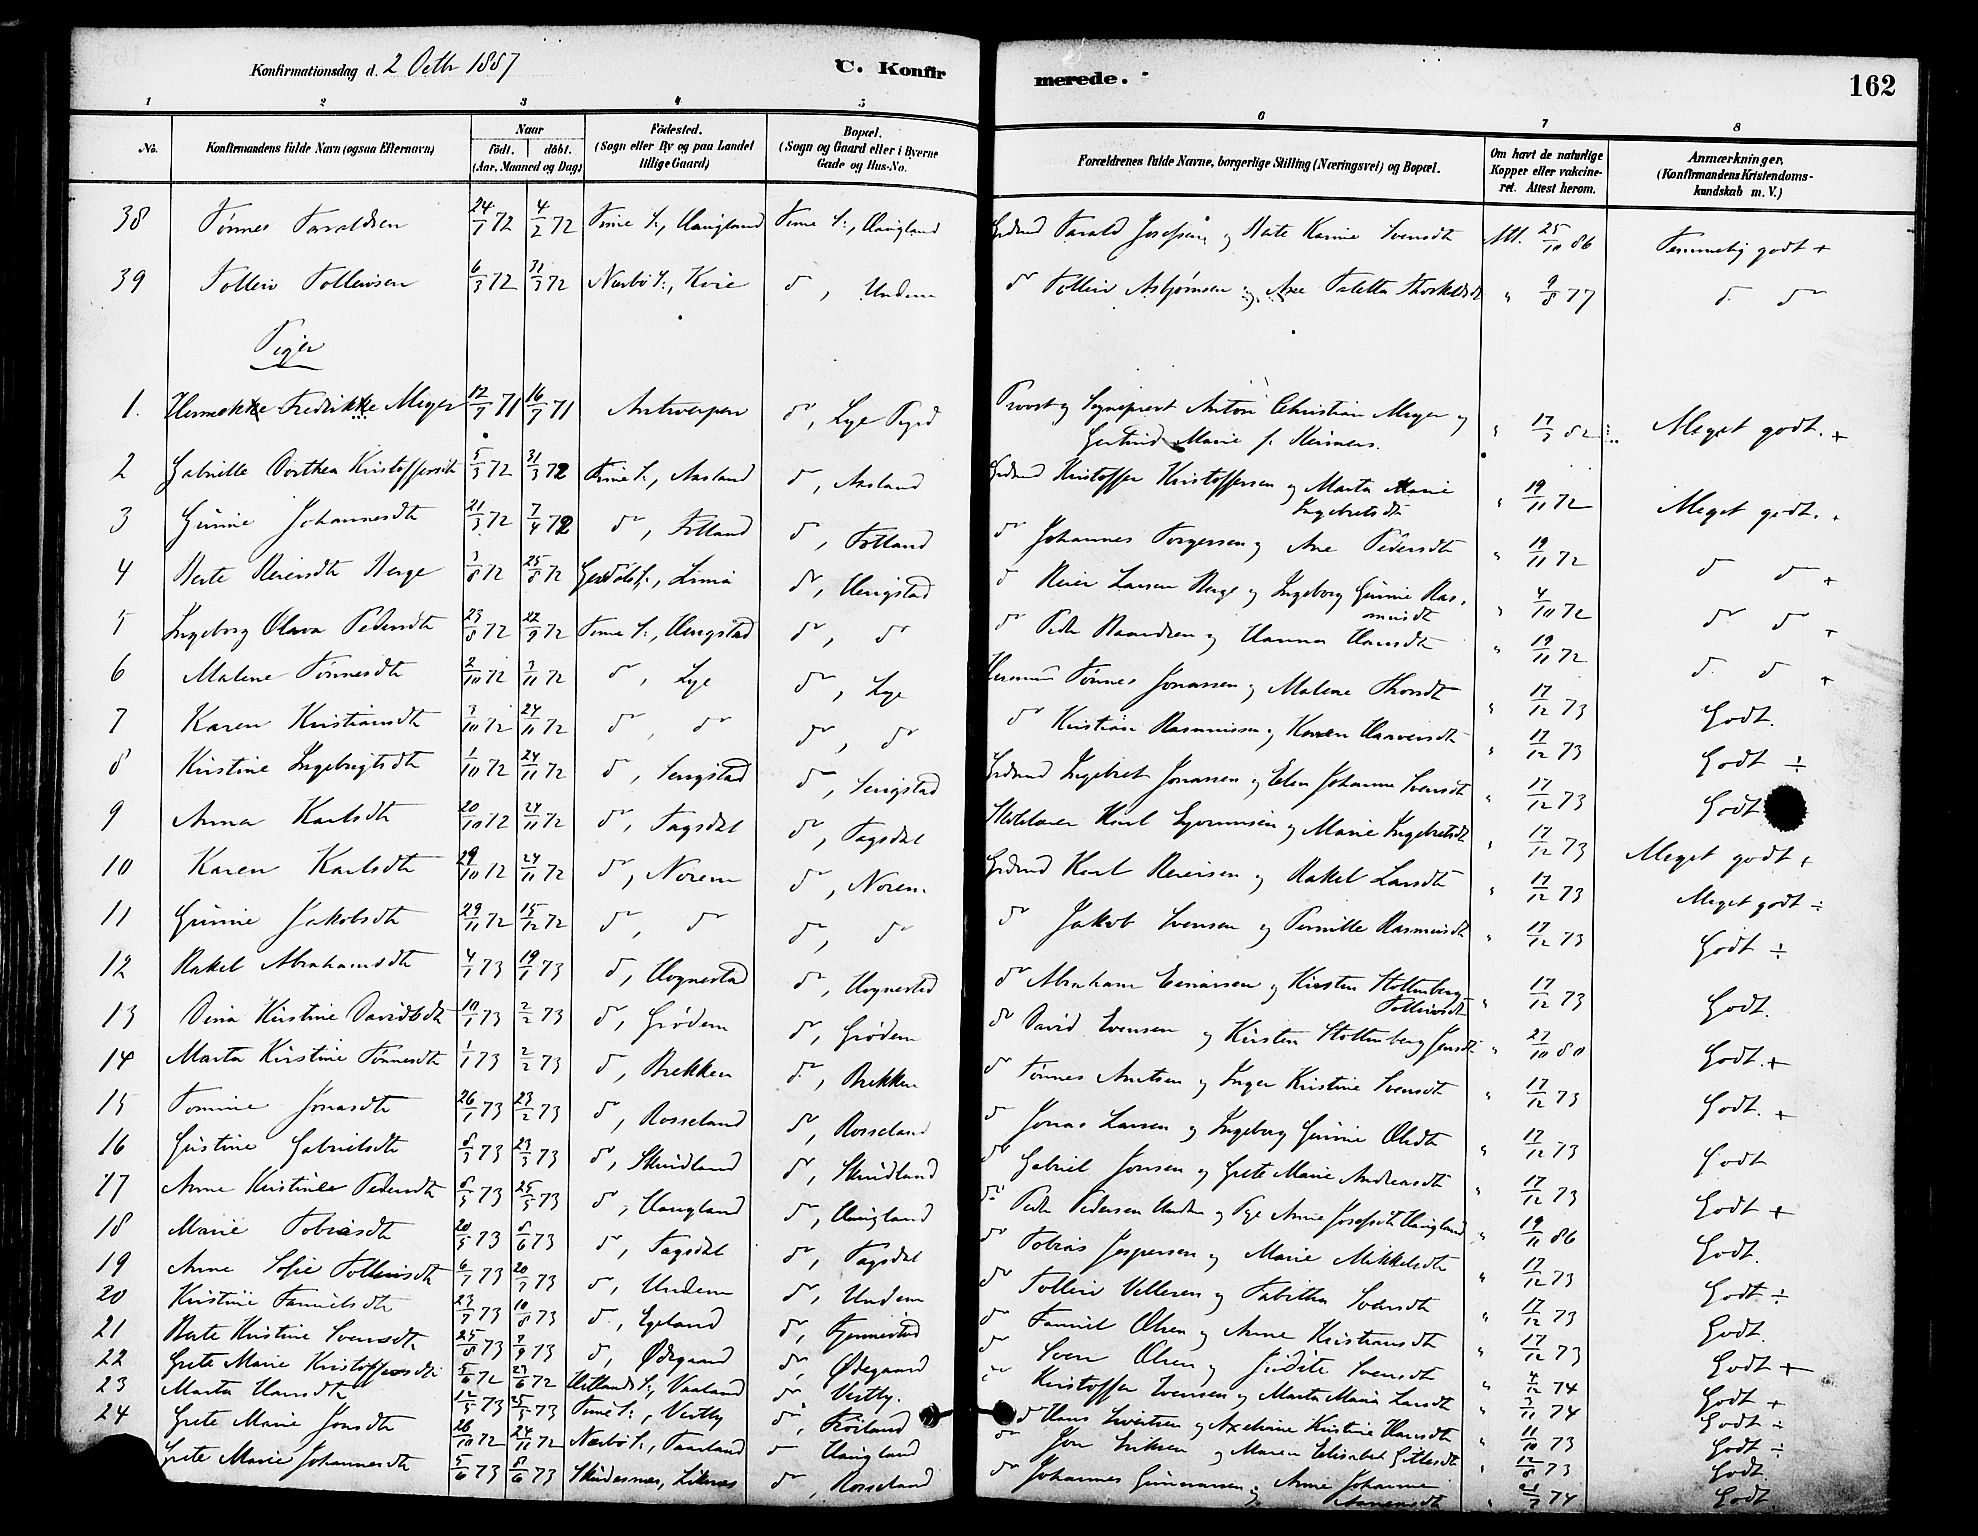 Konfirmationsdag d. 2 Octbr 1887 C. Konfirmerede. 162
1 2 3 4 5 6 7 8
No. Konfirmandens fulde Navn (ogsaa Efternavn) Naar født. døbt. (Aar, Maaned og Dag) Födested. (Sogn eller By og paa Landet tillige Gaard) Bopæl. (Sogn og Gaard eller i Byerne Gade og Hus-No. Forældrenes fulde Navne, borgerlige Stilling (Næringsvei) og Bopæl. Om havt de naturlige Kopper eller vakcineret. Attest herom. Anmærkninger, (Konfirmandens Kristendomskundskab m. V.)
38 Tønnes Taraldsen 24/1 72 4/2 72 Time S:, Haugland Time S:, Haugland Grdmd Tarald Josefsen og Berte Karine Svensdt Att. 25/10 86 Temmelig godt +
39 Tolleiv Tolleivsen 6/3 72 31/3 72 Nærbö S:, Kvie do, Undem do Tolleiv Asbjørnsen og Ane Taletta Thorkeldsdt " 9/8 77 do do
Piger
1. Fredrikke Meyer 12/7 71 16/7 71 Antwerpen do, Lye Provst og Sognepræst Anton Christian Meyer og
Gertrud Marie f. " 17/7 82 Meget godt. +
2 Gabrielle Dorthea Kristoffersdt 5/3 72 31/3 72 Time S:, Aasland do, Aasland Grdmd Kristoffer Kristoffersen og Marta Marie
Ingebretsdt " 19/11 72 Meget godt. +
3 Gunnie Johannesdt 21/3 72 7/4 72 do, Fotland do, Fotland do Johannes Torgersen og Ane Pedersdt " 19/11 72 do do +
4 Berte Reiersdt Berge 3/8 72 25/8 72 Gjesdals S:, Lima do, Hengstad do Reier Larsen Berge og Ingeborg Gunnie Rasmusdt " 4/10 72 do do +
5 Ingeborg Olava Pedersdt 23/8 72 22/9 72 Time S:, Hengstad do, do do Peder Baardsen og Hanna Hansdt " 19/11 72 do do +
6 Malene Tønnesdt 2/10 72 3/11 72 do, Lye do, Lye Tønnes Jonassen og Malene " 17/12 73 Godt.
7 Karen Kristiansdt 3/10 72 24/11 72 do, do do, do do Kristian Rasmussen og Karen " 17/12 73 Godt ÷
8 Kirstine Ingebrigtsdt 1/10 72 24/11 72 do, Sengstad do, Sengstad Grdmd Ingebret Jonassen og Elen Johanne Svensdt " 17/12 73 Godt
9 Anna Karlsdt 20/10 72 24/11 72 do, Tagsdal do, Tagsdal Karl og Marie Ingebretsdt " 17/12 73 Meget godt +
10 Karen Karlsdt 29/10 72 24/11 72 do, Norem do, Norem Grdmd Karl Reiersen og Rakel Larsdt " 17/12 73 Meget godt ÷
11 Gunnie Jakobsdt 29/11 72 15/12 72 do, do do, do do Jakob Svensen og Pernille Rasmusdt " 17/12 73 Godt ÷
12 Rakel Abrahamsdt 4/1 73 19/1 73 do, Hognestad do, Hognestad do Abraham Einarsen og Kirsten Stottenberg
Tolleivsdt " 17/12 73 Godt.
13 Dina Kirstine Davidsdt 10/1 73 2/2 73 do, Grødem do, Grødem do David Svensen og Kirsten Stottenberg Jensdt " 27/10 80 Godt. +
14 Marta Kirstine Tønnesdt 1/1 73 2/2 73 do, Brekken do, Brekken do Tønnes Arntsen og Inger Kristine Svensdt " 17/12 73 Godt. +
15 Tomine Jonasdt 26/1 73 23/2 73 do, Rosseland do, Rosseland do Jonas Larsen og Ingeborg Gunnie Olsdt " 17/12 73 Godt
16 Gustine Gabrielsdt 8/3 73 23/3 73 do, Skrudland do, Skrudland do Gabriel Jonsen og Grete Marie Andreasdt " 17/12 73 Godt +
17 Anne Kristine Pedersdt 8/5 73 25/5 73 do, Haugland do, Haugland do Peder Pedersen Undem og Pge Anne Josefsdt Haugland " 19/11 86 Godt.
18 Marie Tobiasdt 20/5 73 8/6 73 do, Tagsdal do, Tagsdal do Tobias Jespersen og Marie Mikkelsdt " 17/12 73 Godt. ÷
19 Anne Sofie Tolleivsdt 6/7 73 20/7 73 do, Undem do, Undem do Tolleiv Vellesen og Tabitha Svensdt " 17/12 73 Godt.
20 Kristine Samuelsdt 23/7 73 10/8 73 do, Egeland do, Fjermestad do Samuel Olsen og Anne Kristiansdt " 17/12 73 Godt +
21 Berte Kristine Svensdt 25/8 73 7/9 73 do, Ødegaard do, Ødegaard do Sven Olsen og Jurdete Svensdt " 4/12 74 Godt +
22 Grete Marie Kristoffersdt 5/6 72 23/6 72 Hetlands S:, Vaaland do Vestly. do Kristoffer Svensen og Marta Maria Larsdt " 3/11 74 Godt ÷
23 Marta Hansdt 12/5 73 25/5 73 Time S:, Vestly do, Fröiland do Hans Sivertsen og Axeliane Kristine Hansdt " 11/10 73 Godt ÷
24 Grete Marie Jonsdt 26/10 72 24/11 72 Nærbö S:, Taarland do Haugland do Jon Eriksen og Maren Elisabet Gitlesdt " 12/8 73 Godt.
Grete Marie Johannesdt 5/6 73 8/6 73 Skudesnes, Liknes do, Rosseland do Johannes Gunnarsen og Anne Johanne
Aanensdt " 74 Godt